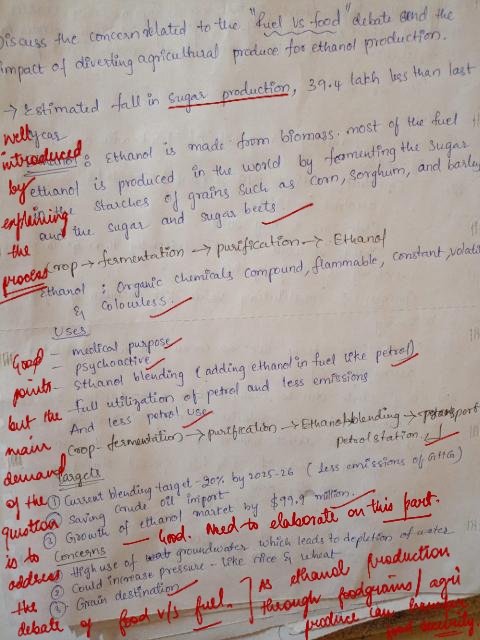 Discuss the concern related to the "fuel vs food" debate and the
impact of diverting agricultural produce for ethanol production.
→ Estimated fall in sugar production, 39.4 lakh less than last
year
Ethanol : Ethanol is made from biomass. most of the fuel
ethanol is produced in the world by fermenting the sugar
in the starches of grains such as corn, sorghum, and barley
and the sugar and sugar beets
well
introduced
by
explaining
the
process
Crop → fermentation → purification → Ethanol
Ethanol : Organic chemicals compound, flammable, constant, volatile
& colourless.
Uses
- medical purpose
- psychoactive
- Ethanol blending (adding ethanol in fuel like petrol)
- full utilization of petrol and less emissions
And less petrol use
Crop - fermentation → purification → Ethanol blending → transport
petrol station.
Targets
① Current blending target - 20% by 2025-26 (less emissions of GHG)
② Saving crude oil import
③ Growth of ethanol market by $99.9 million.
Good. Need to elaborate on this part.
Concerns
① High use of groundwater which leads to depletion of water
② Could increase pressure - like rice & wheat
③ Grain destination
Good
points
but the
main
demand
of the
question
is to
address
the
debate of food v/s fuel.
As ethanol production
through foodgrains / agri
produce can
food security.